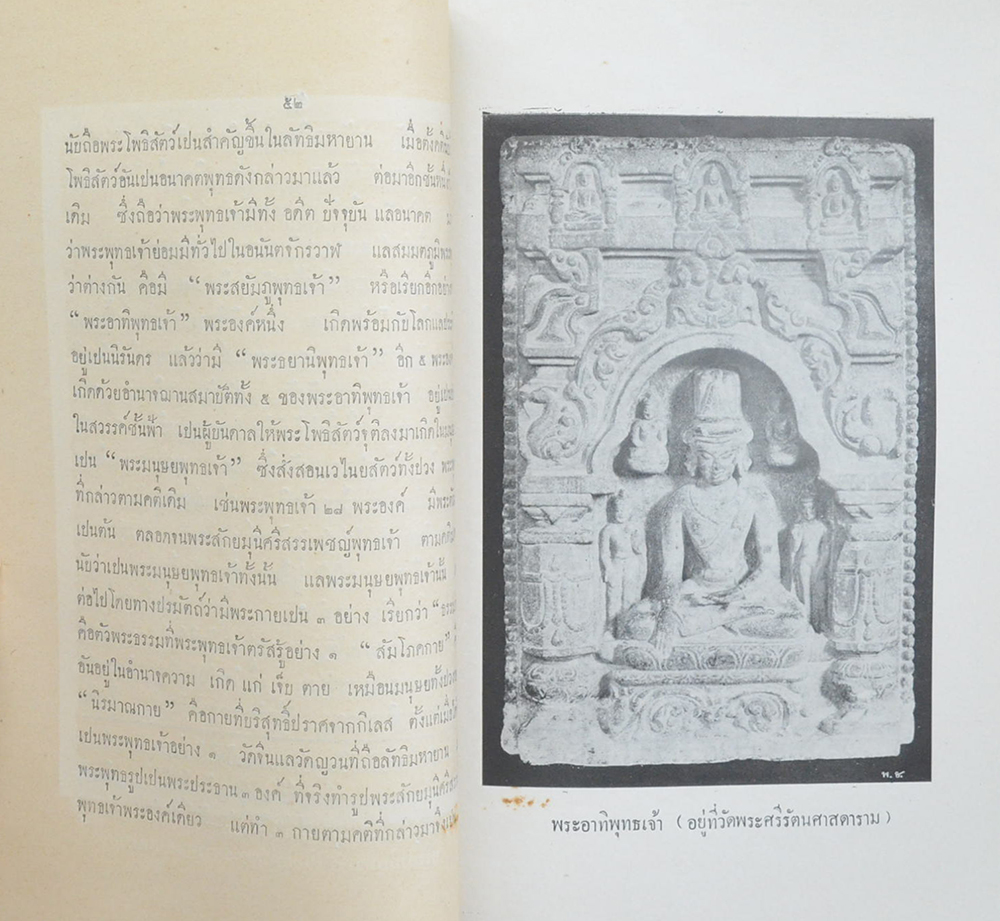 ๒๕
นับถือพระโพธิสัตว์เปนสำคัญขึ้นในลัทธิมหายาน เมื่อตั้งคติ
โพธิสัตว์อันเปนอนาคตพุทธดังกล่าวมาแล้ว ต่อมาอีกชั้น
เดิม ซึ่งถือว่าพระพุทธเจ้ามีทั้ง อดีต ปัจจุบัน แลอนาคต
ว่าพระพุทธเจ้าย่อมมีทั่วไปในอนันตจักรวาฬ แลสมมตภูมิ
ว่าต่างกัน คือมี “พระสยัมภูพุทธเจ้า” หรือเรียกอีกอย่าง
“พระอาทิพุทธเจ้า” พระองค์หนึ่ง เกิดพร้อมกับโลกแล
อยู่เปนนิรันดร แล้วว่ามี “พระธยานิพุทธเจ้า” อีก ๕ พระองค์
เกิดด้วยอำนาจฌานสมาบัติทั้ง ๕ ของพระอาทิพุทธเจ้า อยู่
ในสวรรค์ชั้นฟ้า เปนผู้บันดาลให้พระโพธิสัตว์จุติลงมาเกิดใน
เปน “พระมนุษยพุทธเจ้า” ซึ่งสั่งสอนเวไนยสัตว์ทั้งปวง
ที่กล่าวตามคติเดิม เช่นพระพุทธเจ้า ๒๘ พระองค์ มีพระ
เปนต้น ตลอดจนพระสักยมุนีศรีสรรเพชญ์พุทธเจ้า ตามคติ
นับว่าเปนพระมนุษยพุทธเจ้าทั้งนั้น แลพระมนุษยพุทธเจ้านั้น
ต่อไปโดยทางปรมัตถ์ว่ามีพระกายเปน ๓ อย่าง เรียกว่า “ธรรม
คือตัวพระธรรมที่พระพุทธเจ้าตรัสรู้อย่าง ๑ “สัมโภคกาย”
อันอยู่ในอำนาจความ เกิด แก่ เจ็บ ตาย เหมือนมนุษย์ทั้งปวง
“นิรมาณกาย” คือกายที่บริสุทธิ์ปราศจากกิเลส ตั้งแต่เมื่อ
เปนพระพุทธเจ้าอย่าง ๑ วัดจีนแลวัดญวนที่ถือลัทธิมหายาน
พระพุทธรูปเปนพระประธาน ๓ องค์ ที่จริงทำรูปพระสักยมุนีศรี
พุทธเจ้าพระองค์เดียว แต่ทำ ๓ กายตามคติที่กล่าวมา
พระอาทิพุทธเจ้า ( อยู่ที่วัดพระศรีรัตนศาสดาราม )